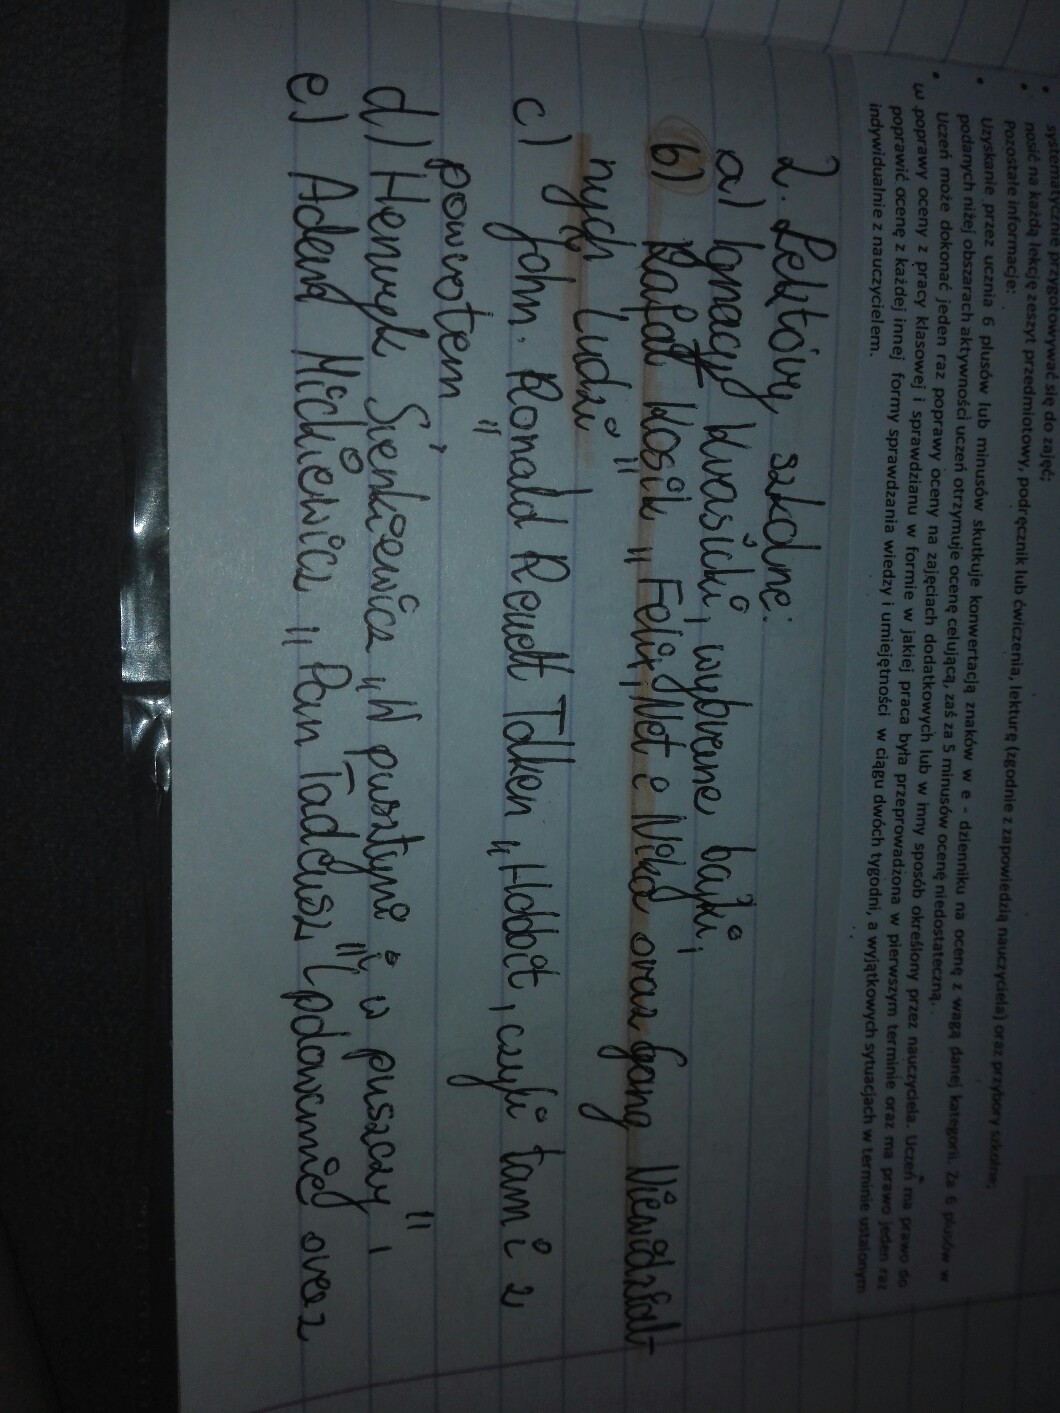 systematycznie przygotowywać się do zajęć;
nosić na każdą lekcję zeszyt przedmiotowy, podręcznik lub ćwiczenia, lekturę (zgodnie z zapowiedzią nauczyciela) oraz przybory szkolne;
Pozostałe informacje:
Uzyskanie przez ucznia 6 plusów lub minusów skutkuje konwertacją znaków w e - dzienniku na ocenę z wagą danej kategorii. Za 6 plusów w
podanych niżej obszarach aktywności uczeń otrzymuje ocenę celującą, zaś za 5 minusów ocenę niedostateczną.
Uczeń może dokonać jeden raz poprawy oceny na zajęciach dodatkowych lub w inny sposób określony przez nauczyciela. Uczeń ma prawo do
poprawy oceny z pracy klasowej i sprawdzianu w formie w jakiej praca była przeprowadzona w pierwszym terminie oraz ma prawo jeden raz
poprawić ocenę z każdej innej formy sprawdzania wiedzy i umiejętności w ciągu dwóch tygodni, a wyjątkowych sytuacjach w terminie ustalonym
indywidualnie z nauczycielem.
2. Lektury szkolne:
a) Ignacy Krasicki, wybrane bajki,
b) Rafał Kosik „Felix, Net i Nika oraz Gang Niewidzial-
nych Ludzi"
c) John. Ronald Reuel Tolkien „Hobbit, czyli tam i z
powrotem",
d) Henryk Sienkiewicz „W pustyni i w puszczy",
e) Adam Mickiewicz „Pan Tadeusz" (polowanie oraz